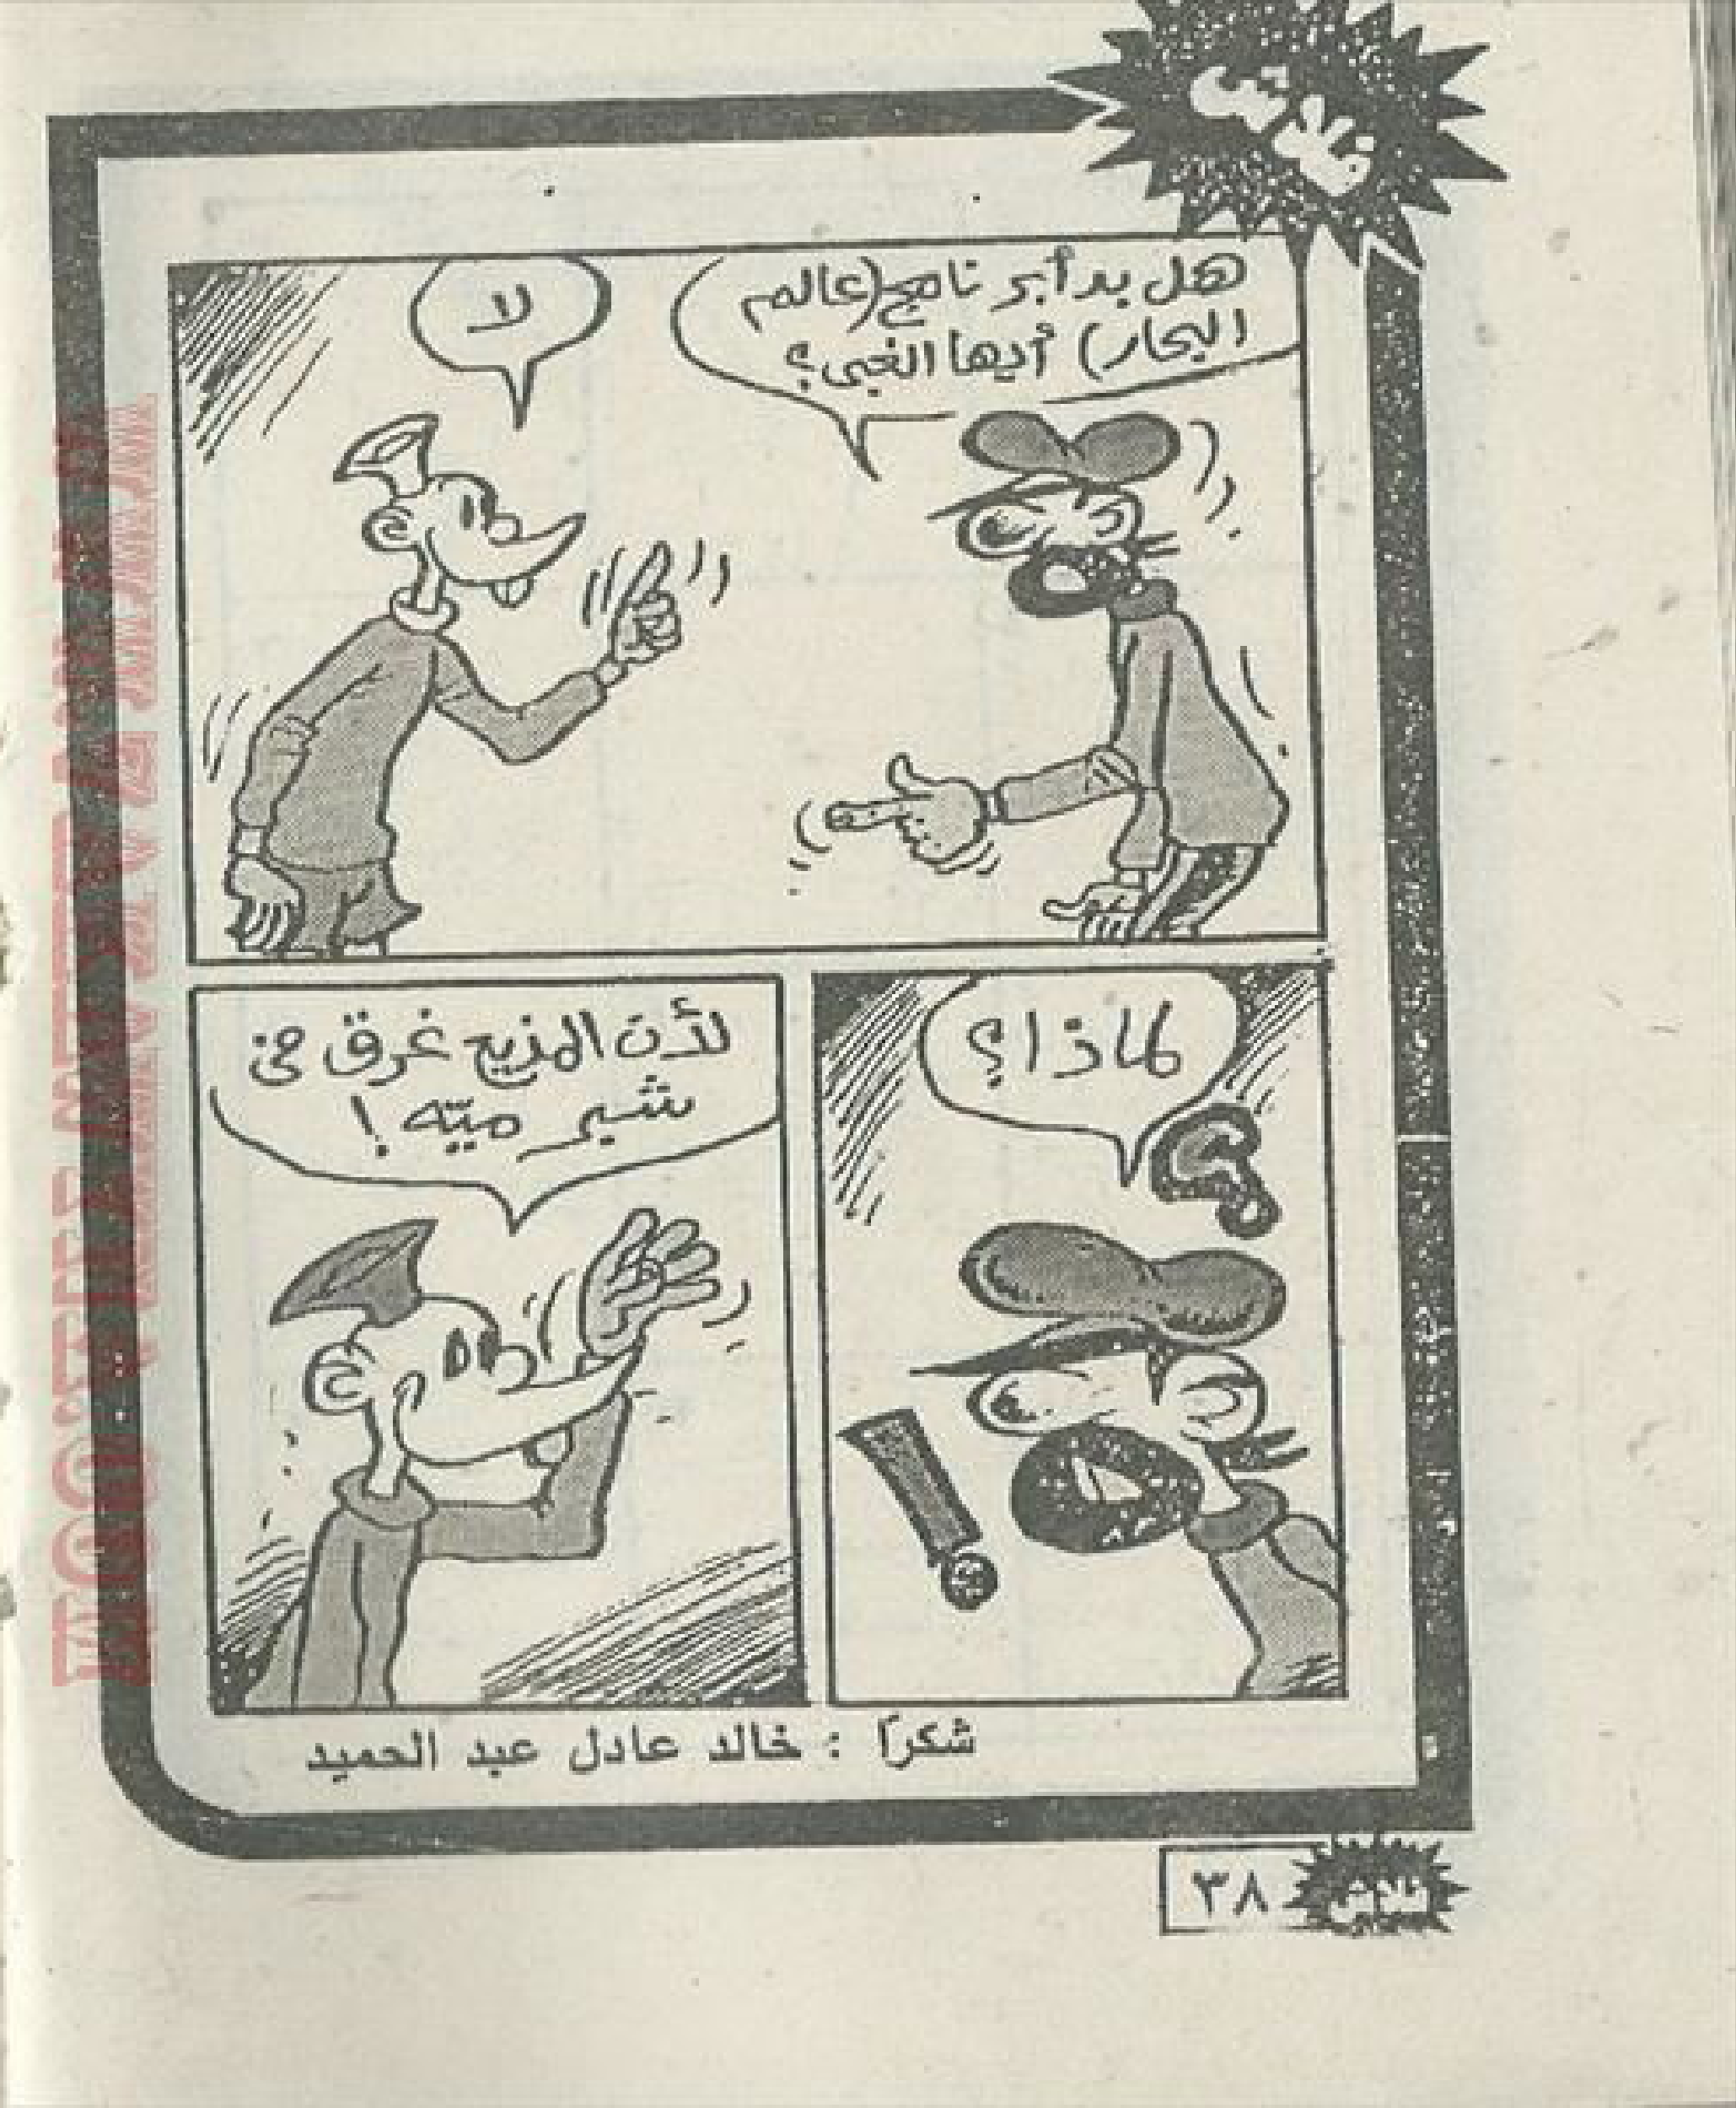 هل بدأ برنامج (عالم
البحار) أيها الغبى؟
لا
لماذا؟
لأن المذيع غرق فى
شبر ميّه !
شكراً : خالد عادل عبد الحميد
فلاش
٣٨